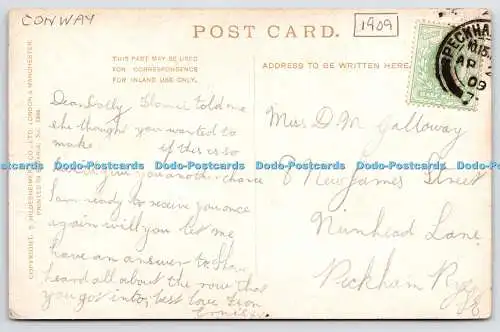 CONWAY
POST CARD.
1909
THIS PART MAY BE USED
FOR CORRESPONDENCE
FOR INLAND USE ONLY.
ADDRESS TO BE WRITTEN HERE.
PECKHAM
AP
09
Dear Dolly told me
she thought you wanted to
make if this is so
give you another chance
I am ready to receive you once
again will you let me
have an answer to
heard all about the row that
you got into, best love from
Miss D. M. Galloway
8 New James Street
Nunhead Lane
Peckham Rye
SE
COPYRIGHT. HILDESHEIMER & CO., LTD. LONDON & MANCHESTER.
PRINTED IN
Dodo-Postcards Dodo-Postcards Dodo-Postcards Dodo-Postcards